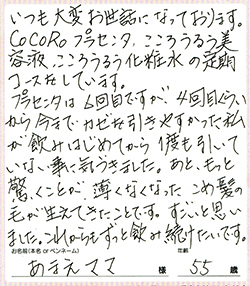 いつも大変お世話になっております。
CoCoRo プラセンタ、こころうるう美
容液、こころうるう化粧水の定期
コースをしています。
プラセンタは6回目ですが、4回目ぐらい
から今までカゼを引きやすかった私
が飲みはじめてから1度も引いて
いない事に気づきました。あと、もっと
驚くことが、薄くなくなった こめ髪の
毛が生えてきたことです。すごいと思い
ました。これからもずっと飲み続けたいです。
お名前(本名 or ペンネーム) 年齢
あきえママ 様 55 歳